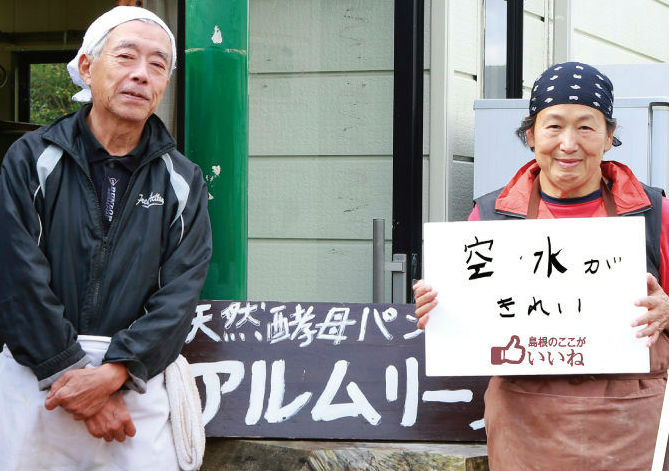 空・水が
きれい
島根のここが
いいね
天然酵母パン
アルムリー